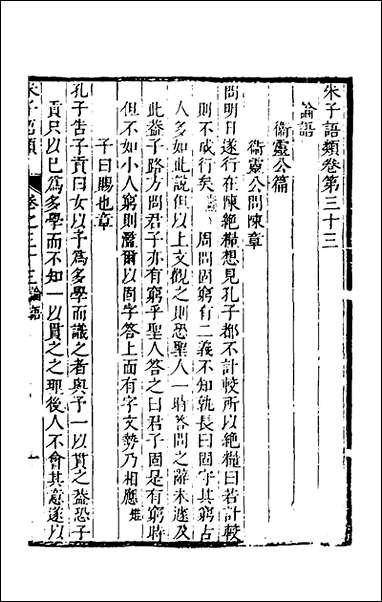 朱子語類卷第三十三
論語
衞靈公篇
衞靈公問陳章
問明日遂行在陳絶糧想見孔子都不計較所以絶糧曰若計較
則不成行矣 周問固窮有二義不知孰長曰固守其窮古
人多如此説但以上文觀之則恐聖人一時答問之辭未遽及
此蓋子路方問君子亦有窮乎聖人答之曰君子固是有窮時
但不如小人窮則濫爾以固字答上面有字文勢乃相應 㽦
子曰賜也章
孔子告子貢曰女以予爲多學而識之者與予一以貫之蓋恐子
貢只以己爲多學而不知一以貫之之理後人不會其意遂以
朱子語類 卷之三十三 論語 一